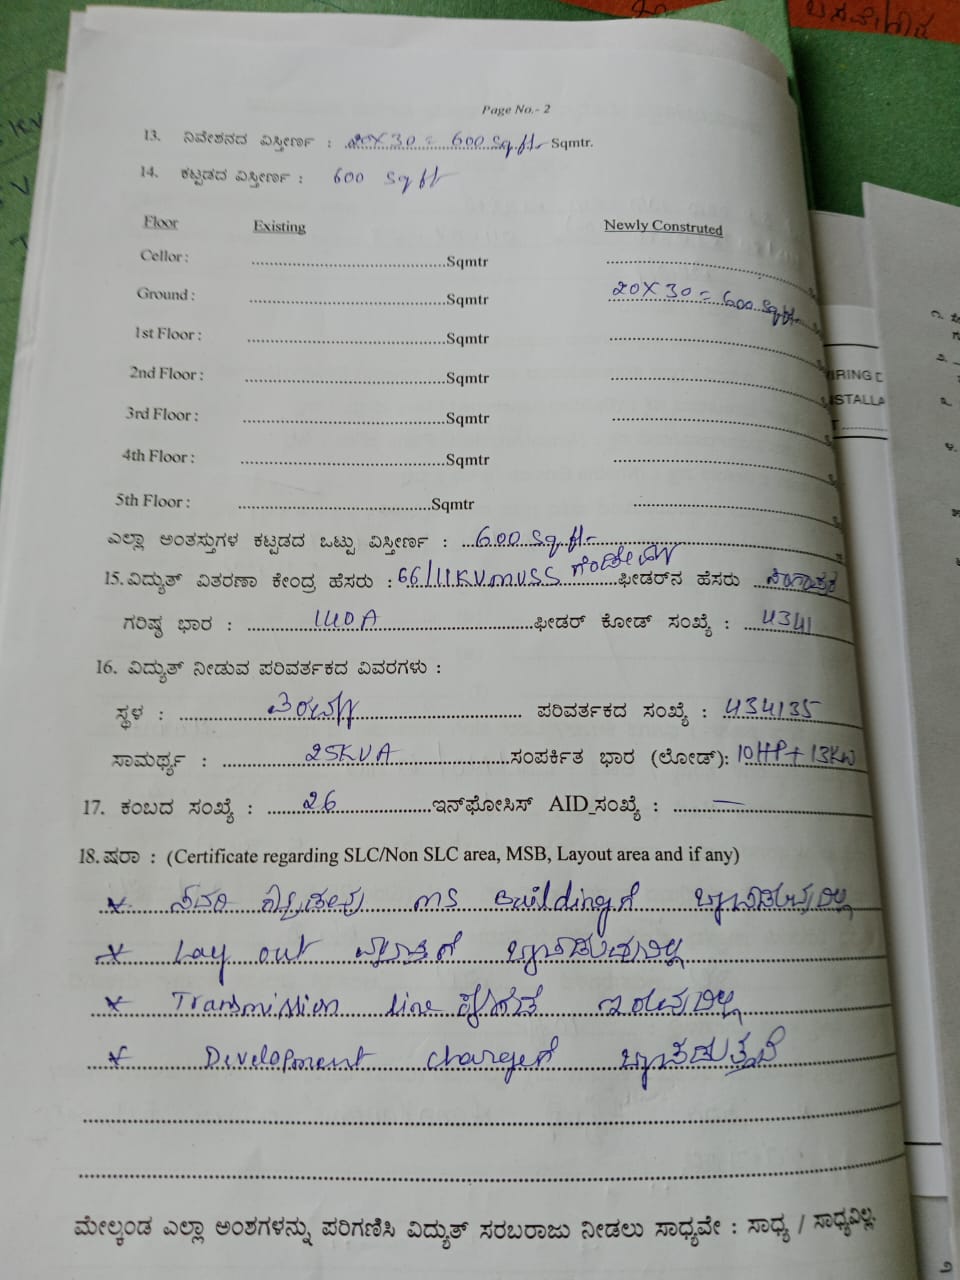 Page No.- 2
13. ನಿವೇಶನದ ವಿಸ್ತೀರ್ಣ : 20X30 = 600 Sq.ft Sqmtr.
14. ಕಟ್ಟಡದ ವಿಸ್ತೀರ್ಣ : 600 Sq ft
Floor Existing Newly Construted
Cellor : Sqmtr
Ground : Sqmtr 20X30 = 600 Sq.ft
1st Floor : Sqmtr
2nd Floor : Sqmtr
3rd Floor : Sqmtr
4th Floor : Sqmtr
5th Floor : Sqmtr
ಎಲ್ಲಾ ಅಂತಸ್ತುಗಳ ಕಟ್ಟಡದ ಒಟ್ಟು ವಿಸ್ತೀರ್ಣ : 600 Sq.ft
15. ವಿದ್ಯುತ್ ವಿತರಣಾ ಕೇಂದ್ರ ಹೆಸರು : 66/11KV MUSS ಫೀಡರ್‌ನ ಹೆಸರು
ಗರಿಷ್ಠ ಭಾರ : 140A ಫೀಡರ್ ಕೋಡ್ ಸಂಖ್ಯೆ : 4341
16. ವಿದ್ಯುತ್ ನೀಡುವ ಪರಿವರ್ತಕದ ವಿವರಗಳು :
ಸ್ಥಳ : ಪರಿವರ್ತಕದ ಸಂಖ್ಯೆ : 434135
ಸಾಮರ್ಥ್ಯ : 25KVA ಸಂಪರ್ಕಿತ ಭಾರ (ಲೋಡ್): 10HP + 13KW
17. ಕಂಬದ ಸಂಖ್ಯೆ : 26 ಇನ್‌ಫೋಸಿಸ್ AID_ಸಂಖ್ಯೆ : —
18. ಷರಾ : (Certificate regarding SLC/Non SLC area, MSB, Layout area and if any)
* MS Buildingಗೆ
* Lay out ವ್ಯಾಪ್ತಿಗೆ ಒಳಪಡುವುದಿಲ್ಲ
* Transmission line ಇರುವುದಿಲ್ಲ
* Development chargeಗೆ ಒಳಪಡುತ್ತದೆ
ಮೇಲ್ಕಂಡ ಎಲ್ಲಾ ಅಂಶಗಳನ್ನು ಪರಿಗಣಿಸಿ ವಿದ್ಯುತ್ ಸರಬರಾಜು ನೀಡಲು ಸಾಧ್ಯವೇ : ಸಾಧ್ಯ / ಸಾಧ್ಯವಿಲ್ಲ.